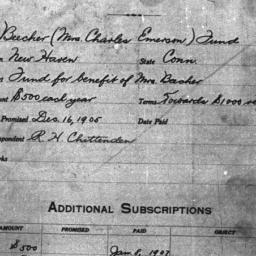 Beecher (Mrs. Charles Emerson) Fund
New Haven State Conn.
Fund for benefit of Mrs. Beecher
$500 each year Terms Towards $1000
Promised Dec. 16, 1905 Date Paid
R. H. Chittenden
ADDITIONAL SUBSCRIPTIONS
AMOUNT PROMISED PAID OBJECT
$500 Jan. 8, 1907